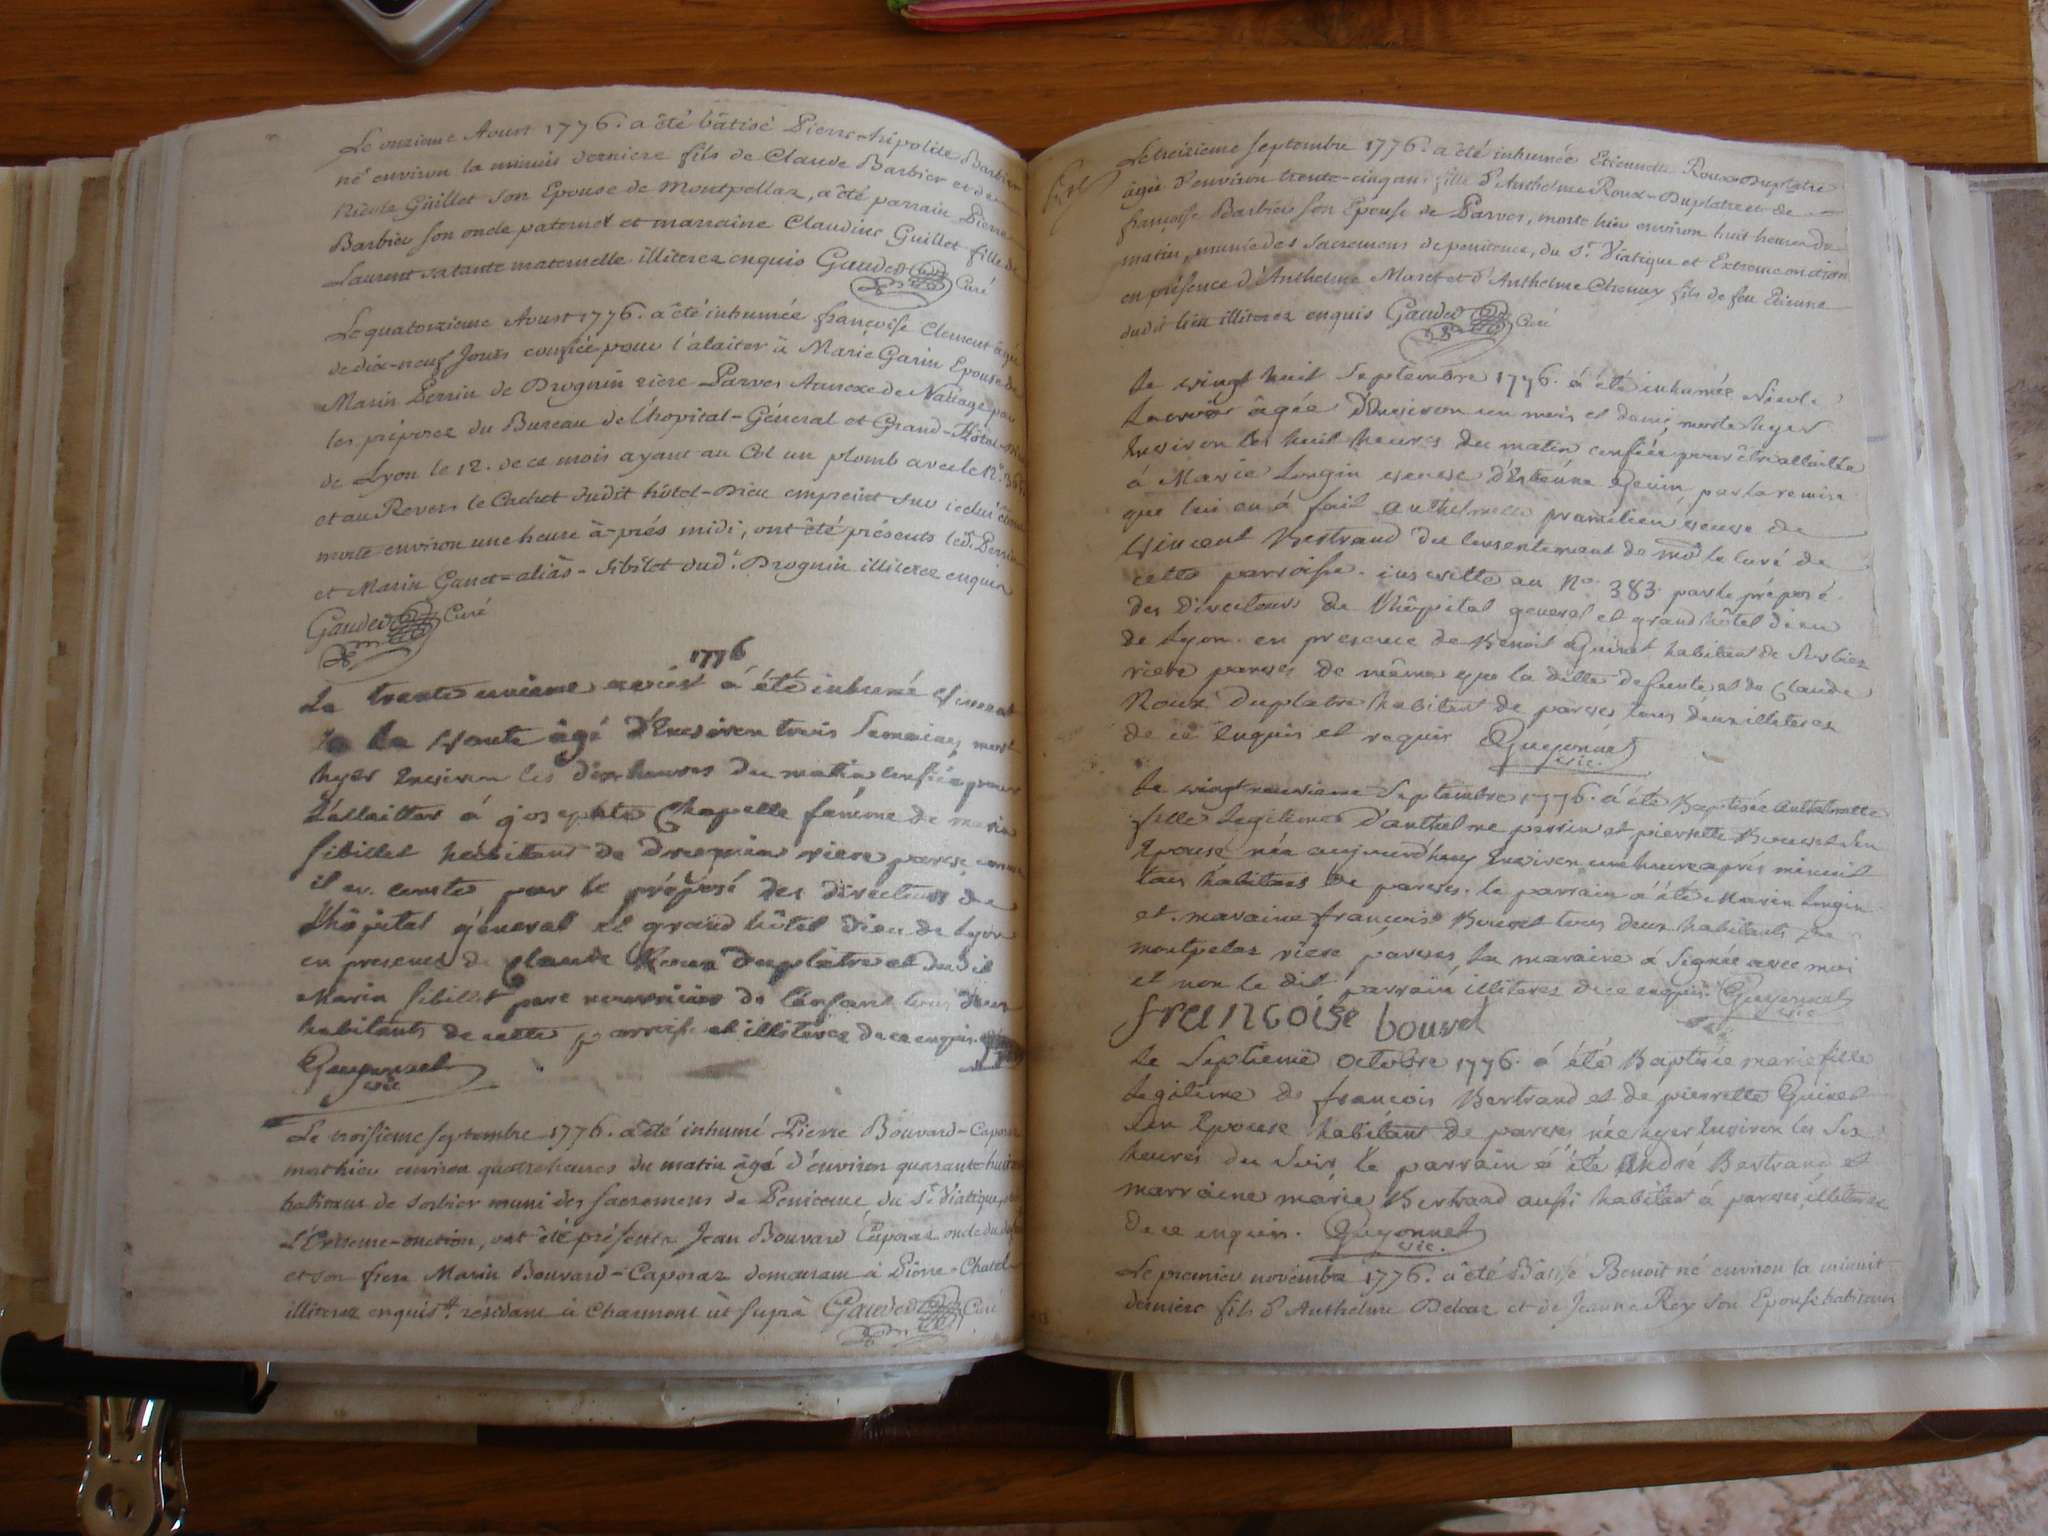 Le onzieme Aoust 1776. a été bâtisé Pierre-hipolite Barbier
né environ la minuit derniere fils de Claude Barbier et de
Nicole Guillet son Epouse de Montpellaz, a été parrain Pierre
Barbier son oncle paternel et marraine Claudine Guillet fille de
Laurent sa tante maternelle illiterez enquis Gaudet Curé
Le quatorzieme Aoust 1776. a été inhumée françoise Clement âgée
de dix-neuf Jours confiée pour l'alaiter à Marie Garin Epouse de
Marin Perrin de Drognin riere Parves Annexe de Nattage par
les préposez du Bureau de l'hopital-Géneral et Grand-Hôtel-Dieu
de Lyon le 12. de ce mois ayant au Col un plomb avec le N°.
et au Revers le Cachet dudit hôtel-Dieu empreint sur icelui
morte environ une heure à-prés midi, ont été présents led. Perrin
et Marin Ganet=aliàs-Sibilet dud. Drognin illiterez enquis
Gaudet Curé
1776
Le trente unieme aoûst a été inhumé Vincent
la Voute âgé d'Environ trois Semaines mort
hyer Environ les dix heures du matin Confié pour
L'allaitter á josephte Chapelle fâmme de marin
Sibillet habitant de drognin riere parves comme
il en conste par le préposé des directeurs de
l'hôpital géneral et grand hôtel dieu de Lyon
en presence de claude Roux Duplâtre et dudit
Marin Sibillet pere nourricier de l'enfant tous deux
habitants de cette parroisse et illiterez de ce enquis.
Guyonnet
vic
Le troisieme septembre 1776. a été inhumé Pierre Bouvard-Caporaz
mathieu environ quatre heures du matin âgé d'environ quarante huit
habitant de Sorbier muni des Sacremens de Penitence du St. Viatique,
L'Extreme-onction, ont été présents Jean Bouvard Caporaz oncle du
et son frere Marin Bouvard-Caporaz demeurant à Pierre-Chatel
illiterez enquis résidant à Charmont ùt suprà Gaudet Curé
Le treizieme septembre 1776. a été inhumée Etiennette Roux-Duplatre
âgée d'environ trente-cinq ans fille d'Anthelme Roux-Duplatre et de
françoise Barbier son Epouse de Parves, morte hier environ huit heures du
matin, munie des Sacremens de penitence, du St. Viatique et Extremeonction
en présence d'Anthelme Maret et d'Anthelme Chenux fils de feu Etienne
dudit lieu illiterez enquis Gaudet Curé
Le vingt huit Septembre 1776. á été inhumée Nicole
Lacroix âgée d'Environ un mois et demi, morte hyer
Environ les huit heures du matin confiée pour être allaitée
á Marie Longin veuve d'Estienne Genin, par la remise
que lui en á fait anthelmette pramilieu veuve de
Vincent Bertrand du Consentement de mr. le Curé de
cette parroisse. inscritte au N°. 383. par le préposé
des directeurs de l'hôpital general et grand hôtel dieu
de Lyon. en presence de Benoit Guinet habitant de Sorbier
riere parves de même que la ditte defunte et de Claude
Roux Duplatre habitant de parves tous deux illiterez
de ce Enquis et requis Guyonnet
vic.
Le vingt neuvieme Septembre 1776. á été Baptisée anthelmette
fille Legitime d'anthelme pérrin et pierrette Bouvet son
Epouse née aujourd'huy Environ une heure aprés minuit
tous habitans de parves. le parrain á été Marin Longin
et maraine françoise Bouvet tous deux habitants de
montpelaz riere parves, la maraine á Signée avec moi
et non le dit parrain illiterez de ce enquis. Guyonnet
vic
françoise bouvet
Le Septieme octobre 1776. á été Baptisée marie fille
Legitime de françois Bertrand et de pierrette Guinet
son Epouse habitant de parves née hyer Environ les Six
heures du Soir, le parrain á été André Bertrand et
marraine marie Bertrand aussi habitant á parves, illiterez
de ce enquis. Guyonnet
vic.
Le premier novembre 1776. a été Batisé Benoit né environ la minuit
derniere fils d'Anthelme Delcar et de Jeanne Rey son Epouse habitans